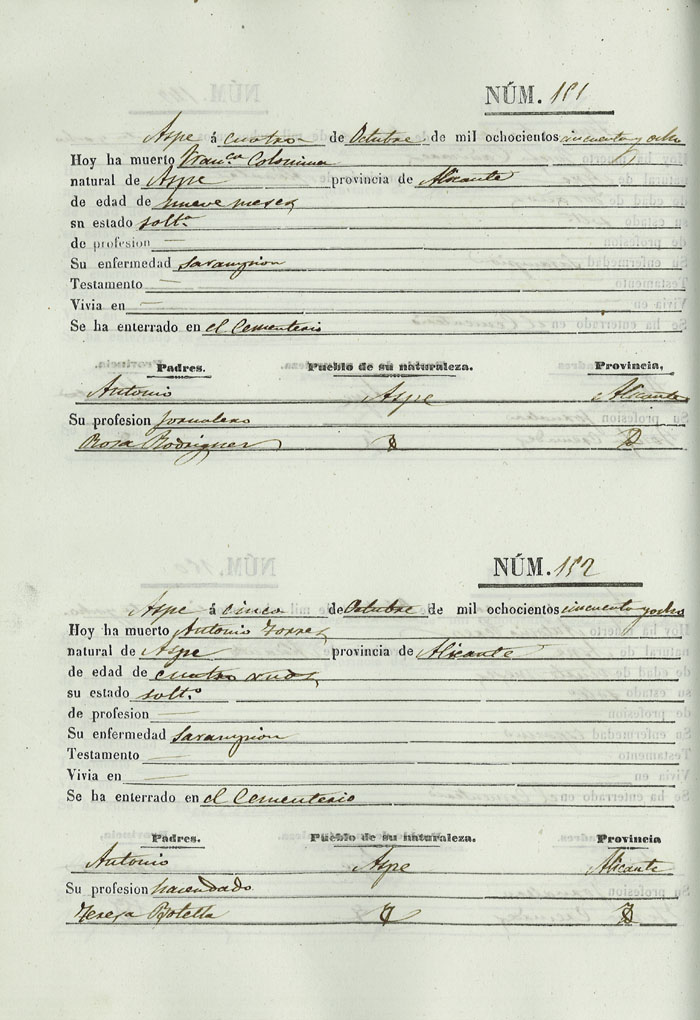 NÚM. 151
Aspe á cuatro de Octubre de mil ochocientos cincuenta y ocho
Hoy ha muerto Fran.ca Colomina
natural de Aspe provincia de Alicante
de edad de nueve meses
sn estado solt.a
de profesion —
Su enfermedad sarampion
Testamento —
Vivia en —
Se ha enterrado en el Cementerio
Padres. Pueblo de su naturaleza. Provincia.
Antonio Aspe Alicante
Su profesion jornalero
Rosa Rodriguez
NÚM. 152
Aspe á cinco de Octubre de mil ochocientos cincuenta y ocho
Hoy ha muerto Antonio Torres
natural de Aspe provincia de Alicante
de edad de cuatro
su estado solt.o
de profesion —
Su enfermedad sarampion
Testamento —
Vivia en —
Se ha enterrado en el Cementerio
Padres. Pueblo de su naturaleza. Provincia
Antonio Aspe Alicante
Su profesion hacendado
Teresa Botella